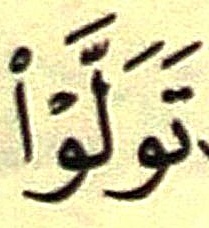 تَوَلَّوْا۟